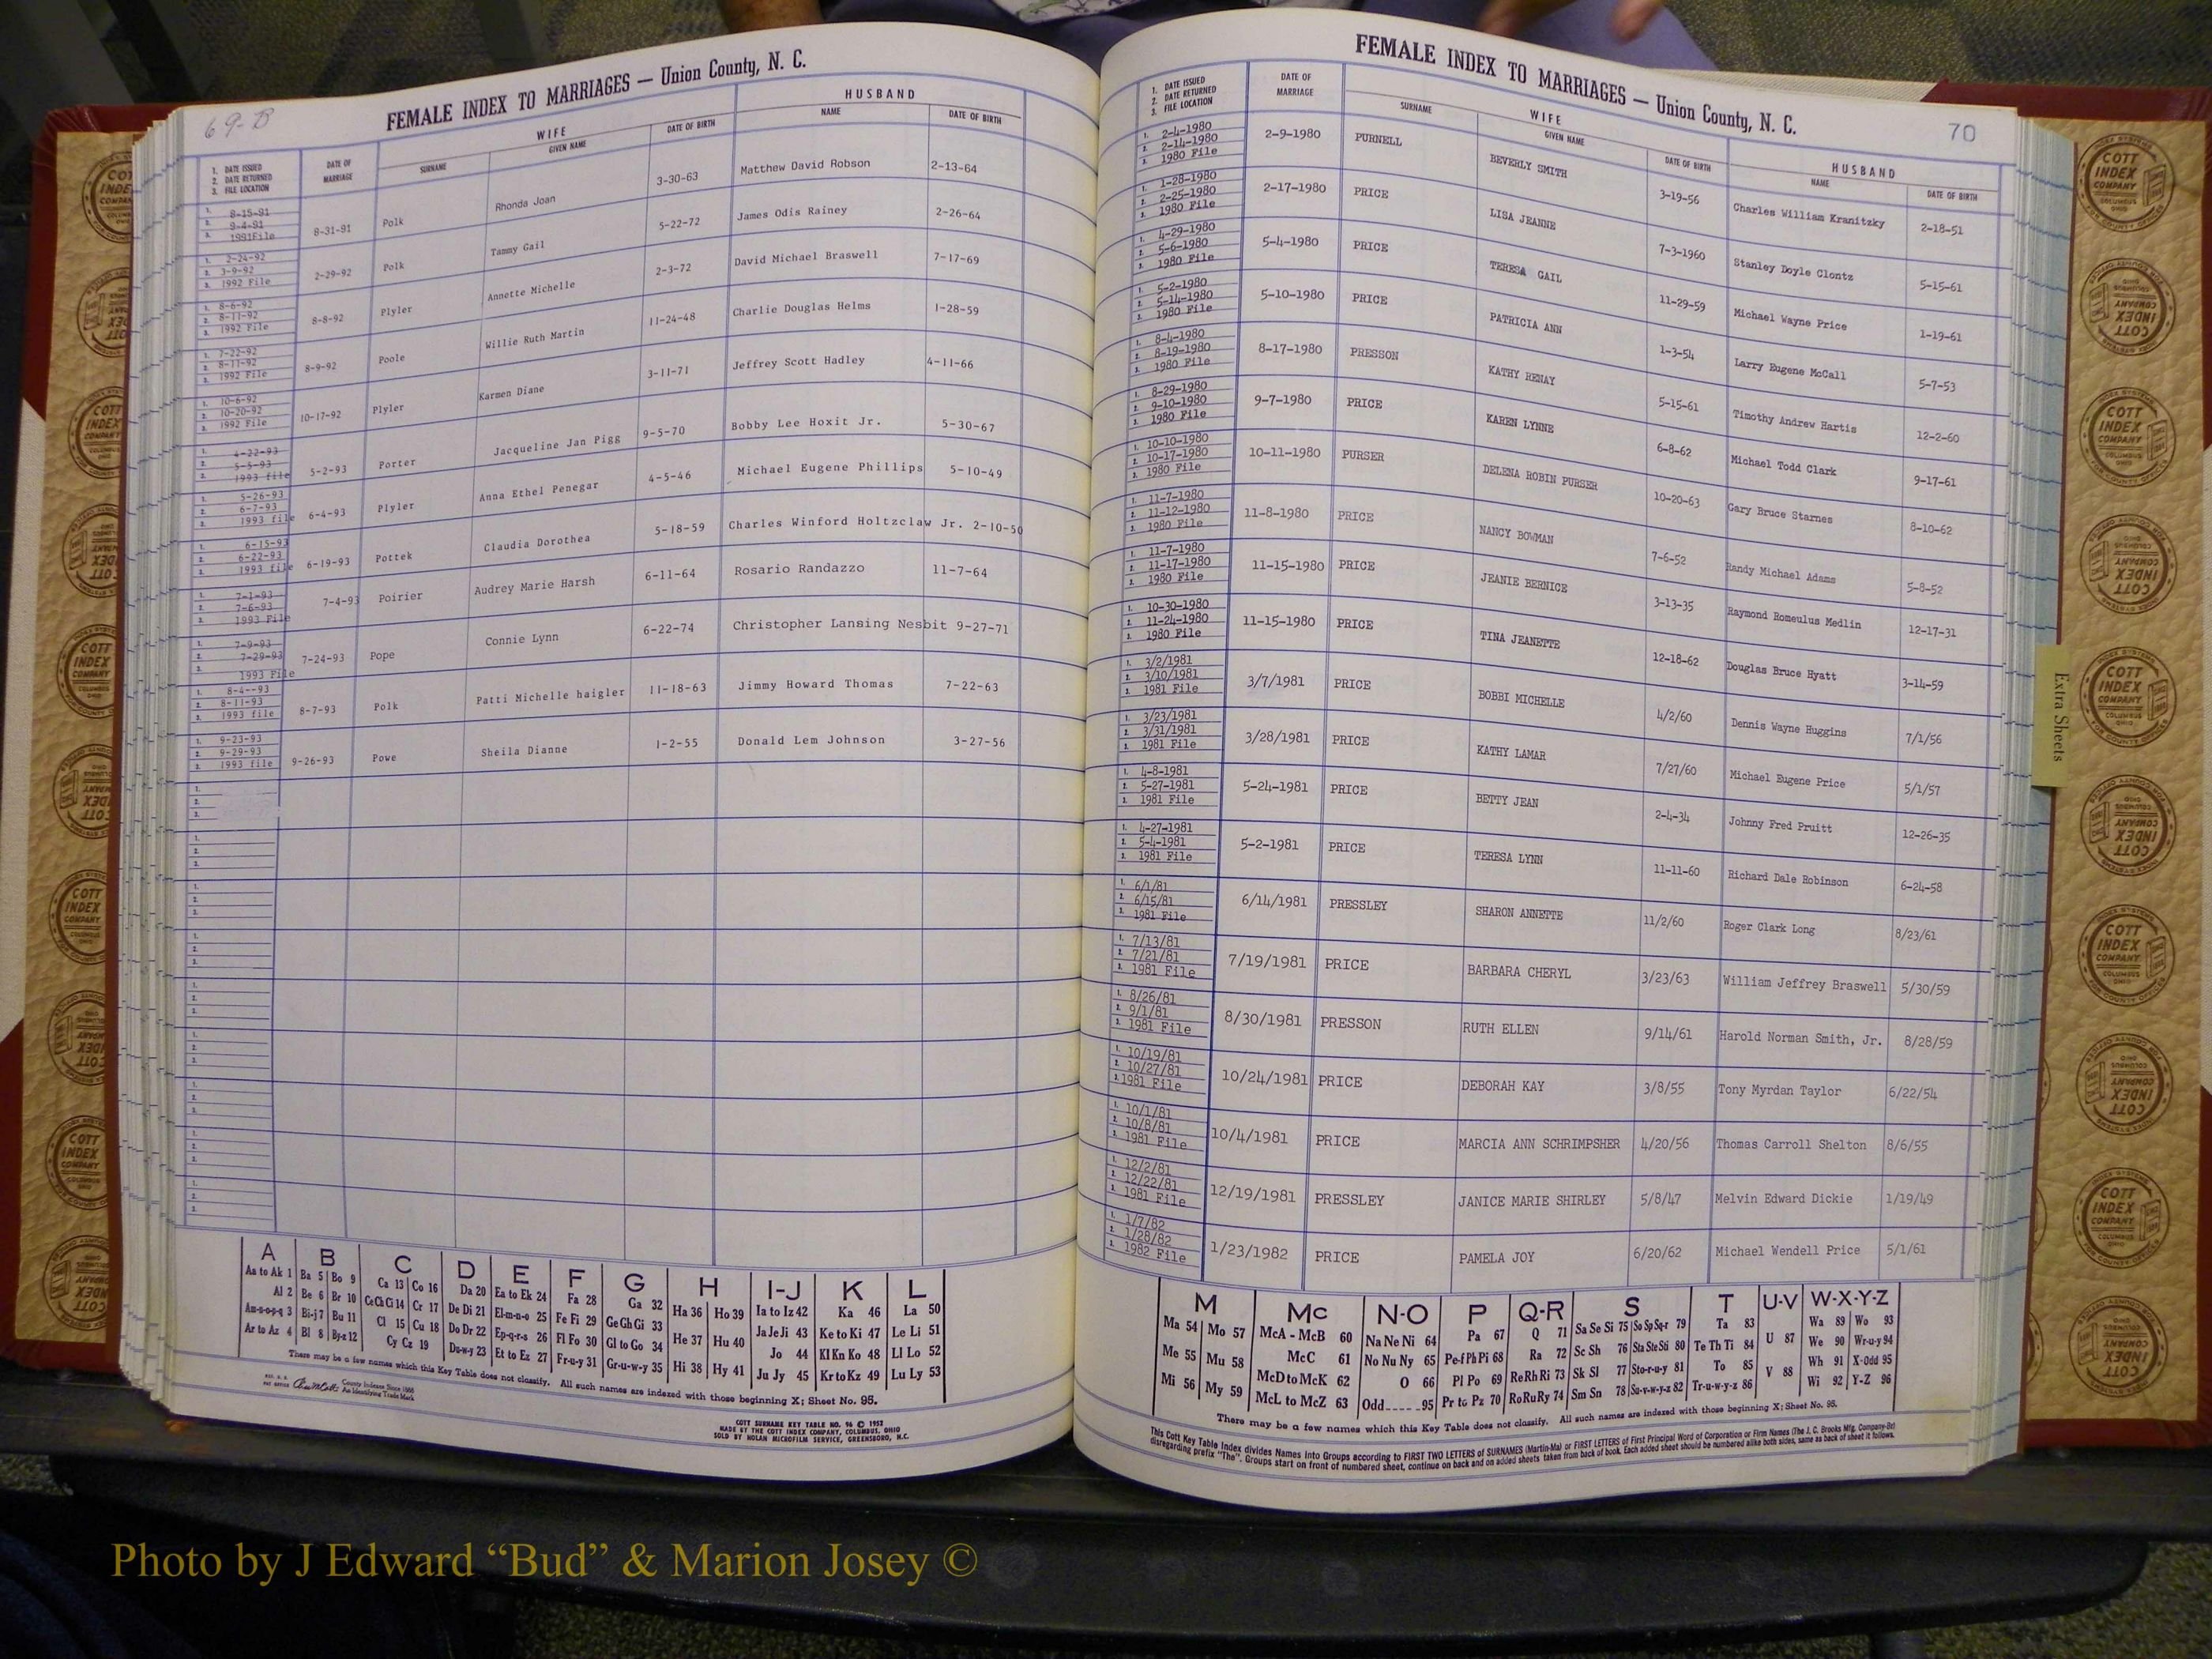 69-B
FEMALE INDEX TO MARRIAGES — Union County, N. C.
1. DATE ISSUED 2. DATE RETURNED 3. FILE LOCATION DATE OF MARRIAGE WIFE SURNAME GIVEN NAME DATE OF BIRTH HUSBAND NAME DATE OF BIRTH
1. 8-15-91 2. 9-4-91 3. 1991File 8-31-91 Polk Rhonda Joan 3-30-63 Matthew David Robson 2-13-64
1. 2-24-92 2. 3-9-92 3. 1992 File 2-29-92 Polk Tammy Gail 5-22-72 James Odis Rainey 2-26-64
1. 8-6-92 2. 8-11-92 3. 1992 File 8-8-92 Plyler Annette Michelle 2-3-72 David Michael Braswell 7-17-69
1. 7-22-92 2. 8-11-92 3. 1992 File 8-9-92 Poole Willie Ruth Martin 11-24-48 Charlie Douglas Helms 1-28-59
1. 10-6-92 2. 10-20-92 3. 1992 File 10-17-92 Plyler Karmen Diane 3-11-71 Jeffrey Scott Hadley 4-11-66
1. 4-22-93 2. 5-5-93 3. 1993 file 5-2-93 Porter Jacqueline Jan Pigg 9-5-70 Bobby Lee Hoxit Jr. 5-30-67
1. 5-26-93 2. 6-7-93 3. 1993 file 6-4-93 Plyler Anna Ethel Penegar 4-5-46 Michael Eugene Phillips 5-10-49
1. 6-15-93 2. 6-22-93 3. 1993 file 6-19-93 Pottek Claudia Dorothea 5-18-59 Charles Winford Holtzclaw Jr. 2-10-50
1. 7-1-93 2. 7-6-93 3. 1993 File 7-4-93 Poirier Audrey Marie Harsh 6-11-64 Rosario Randazzo 11-7-64
1. 7-9-93 2. 7-29-93 3. 1993 File 7-24-93 Pope Connie Lynn 6-22-74 Christopher Lansing Nesbit 9-27-71
1. 8-4--93 2. 8-11-93 3. 1993 file 8-7-93 Polk Patti Michelle haigler 11-18-63 Jimmy Howard Thomas 7-22-63
1. 9-23-93 2. 9-29-93 3. 1993 file 9-26-93 Powe Sheila Dianne 1-2-55 Donald Lem Johnson 3-27-56
A B C D E F G H I-J K L
Aa to Ak 1 Ba 5 Bo 9 Ca 13 Co 16 Da 20 Ea to Ek 24 Fa 28 Ga 32 Ha 36 Ho 39 Ia to Iz 42 Ka 46 La 50
Al 2 Be 6 Br 10 Ce Ch Ci 14 Cr 17 De Di 21 El-m-n-o 25 Fe Fi 29 Ge Gh Gi 33 He 37 Hu 40 Ja Je Ji 43 Ke to Ki 47 Le Li 51
Am-n-o-p-q 3 Bi-j 7 Bu 11 Cl 15 Cu 18 Do Dr 22 Ep-q-r-s 26 Fl Fo 30 Gl to Go 34 Hi 38 Hy 41 Jo 44 Kl Kn Ko 48 Ll Lo 52
Ar to Az 4 Bl 8 By-z 12 Cy Cz 19 Du-w-y 23 Et to Ez 27 Fr-u-y 31 Gr-u-w-y 35 Ju Jy 45 Kr to Kz 49 Lu Ly 53
There may be a few names which this Key Table does not classify. All such names are indexed with those beginning X; Sheet No. 95.
County Indexes Since 1888
An Identifying Trade Mark
COTT SURNAME KEY TABLE NO. 96 © 1953
MADE BY THE COTT INDEX COMPANY, COLUMBUS, OHIO
SOLD BY NOLAN MICROFILM SERVICE, GREENSBORO, N.C.
70
FEMALE INDEX TO MARRIAGES — Union County, N. C.
1. DATE ISSUED 2. DATE RETURNED 3. FILE LOCATION DATE OF MARRIAGE WIFE SURNAME GIVEN NAME DATE OF BIRTH HUSBAND NAME DATE OF BIRTH
1. 2-4-1980 2. 2-14-1980 3. 1980 File 2-9-1980 PURNELL BEVERLY SMITH 3-19-56 Charles William Kranitzky 2-18-51
1. 1-28-1980 2. 2-25-1980 3. 1980 File 2-17-1980 PRICE LISA JEANNE 7-3-1960 Stanley Doyle Clontz 5-15-61
1. 4-29-1980 2. 5-6-1980 3. 1980 File 5-4-1980 PRICE TERESA GAIL 11-29-59 Michael Wayne Price 1-19-61
1. 5-2-1980 2. 5-14-1980 3. 1980 File 5-10-1980 PRICE PATRICIA ANN 1-3-54 Larry Eugene McCall 5-7-53
1. 8-4-1980 2. 8-19-1980 3. 1980 File 8-17-1980 PRESSON KATHY RENAY 5-15-61 Timothy Andrew Hartis 12-2-60
1. 8-29-1980 2. 9-10-1980 3. 1980 File 9-7-1980 PRICE KAREN LYNNE 6-8-62 Michael Todd Clark 9-17-61
1. 10-10-1980 2. 10-17-1980 3. 1980 File 10-11-1980 PURSER DELENA ROBIN PURSER 10-20-63 Gary Bruce Starnes 8-10-62
1. 11-7-1980 2. 11-12-1980 3. 1980 File 11-8-1980 PRICE NANCY BOWMAN 7-6-52 Randy Michael Adams 5-8-52
1. 11-7-1980 2. 11-17-1980 3. 1980 File 11-15-1980 PRICE JEANIE BERNICE 3-13-35 Raymond Romeulus Medlin 12-17-31
1. 10-30-1980 2. 11-24-1980 3. 1980 File 11-15-1980 PRICE TINA JEANETTE 12-18-62 Douglas Bruce Hyatt 3-14-59
1. 3/2/1981 2. 3/10/1981 3. 1981 File 3/7/1981 PRICE BOBBI MICHELLE 4/2/60 Dennis Wayne Huggins 7/1/56
1. 3/23/1981 2. 3/31/1981 3. 1981 File 3/28/1981 PRICE KATHY LAMAR 7/27/60 Michael Eugene Price 5/1/57
1. 4-8-1981 2. 5-27-1981 3. 1981 File 5-24-1981 PRICE BETTY JEAN 2-4-34 Johnny Fred Pruitt 12-26-35
1. 4-27-1981 2. 5-4-1981 3. 1981 File 5-2-1981 PRICE TERESA LYNN 11-11-60 Richard Dale Robinson 6-24-58
1. 6/1/81 2. 6/15/81 3. 1981 File 6/14/1981 PRESSLEY SHARON ANNETTE 11/2/60 Roger Clark Long 8/23/61
1. 7/13/81 2. 7/21/81 3. 1981 File 7/19/1981 PRICE BARBARA CHERYL 3/23/63 William Jeffrey Braswell 5/30/59
1. 8/26/81 2. 9/1/81 3. 1981 File 8/30/1981 PRESSON RUTH ELLEN 9/14/61 Harold Norman Smith, Jr. 8/28/59
1. 10/19/81 2. 10/27/81 3. 1981 File 10/24/1981 PRICE DEBORAH KAY 3/8/55 Tony Myrdan Taylor 6/22/54
1. 10/1/81 2. 10/8/81 3. 1981 File 10/4/1981 PRICE MARCIA ANN SCHRIMPSHER 4/20/56 Thomas Carroll Shelton 8/6/55
1. 12/2/81 2. 12/22/81 3. 1981 File 12/19/1981 PRESSLEY JANICE MARIE SHIRLEY 5/8/47 Melvin Edward Dickie 1/19/49
1. 1/7/82 2. 1/28/82 3. 1982 File 1/23/1982 PRICE PAMELA JOY 6/20/62 Michael Wendell Price 5/1/61
M Mc N-O P Q-R S T U-V W-X-Y-Z
Ma 54 Mo 57 McA - McB 60 Na Ne Ni 64 Pa 67 Q 71 Sa Se Si 75 So Sp Sq-r 79 Ta 83 U 87 Wa 89 Wo 93
Me 55 Mu 58 McC 61 No Nu Ny 65 Pe-f Ph Pi 68 Ra 72 Sc Sh 76 Sta Ste Sti 80 Te Th Ti 84 V 88 We 90 Wr-u-y 94
Mi 56 My 59 McD to McK 62 O 66 Pl Po 69 Re Rh Ri 73 Sk Sl 77 Sto-r-u-y 81 To 85 Wh 91 X-Odd 95
McL to McZ 63 Odd 95 Pr to Pz 70 Ro Ru Ry 74 Sm Sn 78 Su-v-w-y-z 82 Tr-u-w-y-z 86 Wi 92 Y-Z 96
There may be a few names which this Key Table does not classify. All such names are indexed with those beginning X; Sheet No. 95.
This Cott Key Table Index divides Names into Groups according to FIRST TWO LETTERS of SURNAMES (Martin-Ma) or FIRST LETTERS of First Principal Word of Corporation or Firm Names (The J. C. Brooks Mfg. Company-Br)
disregarding prefix "The". Groups start on front of numbered sheet, continue on back and on added sheets taken from back of book. Each added sheet should be numbered alike both sides, same as back of sheet it follows.
Extra Sheets
COTT INDEX COMPANY COLUMBUS OHIO
Photo by J Edward “Bud” & Marion Josey ©